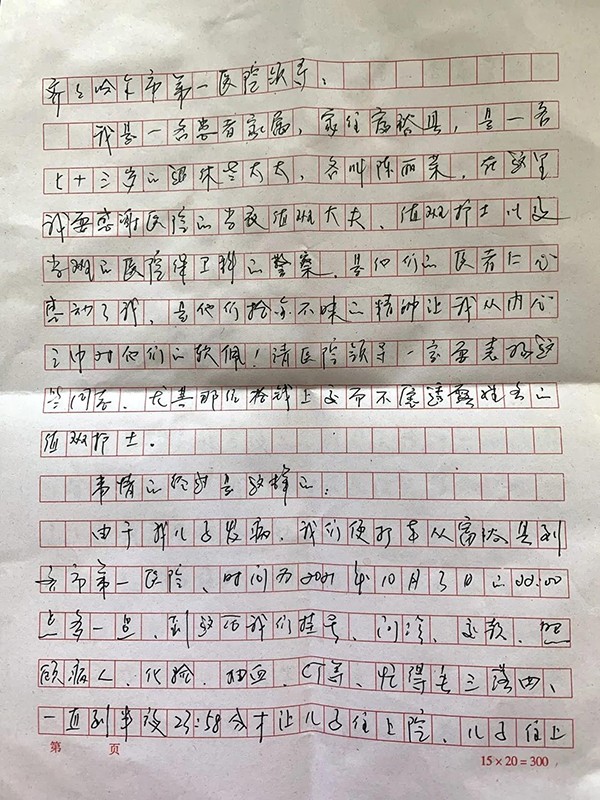 齐齐哈尔市第一医院领导：
我是一名患者家属，家住富裕县，是一名
七十三岁的退休老太太，名叫陈丽荣。在这里
我要感谢医院的当夜值班大夫、值班护士以及
当班的医院保卫科的警察。是他们的医者仁心
感动了我，是他们拾金不昧的精神让我从内心
之中对他们的钦佩！请医院领导一定要表扬这
些同志，尤其那位拾钱上交而不愿透露姓名的
值班护士。
事情的经过是这样的：
由于我儿子发病，我们便打车从富裕县到
市第一医院，时间为2021年10月3日的00:00
点多一点，到这而我们挂号、问诊、交款、照
顾病人、化验、抽血、CT等，忙得丢三落四、
一直到半夜23:58分才让儿子住上院，儿子住上
第 页
15×20=300